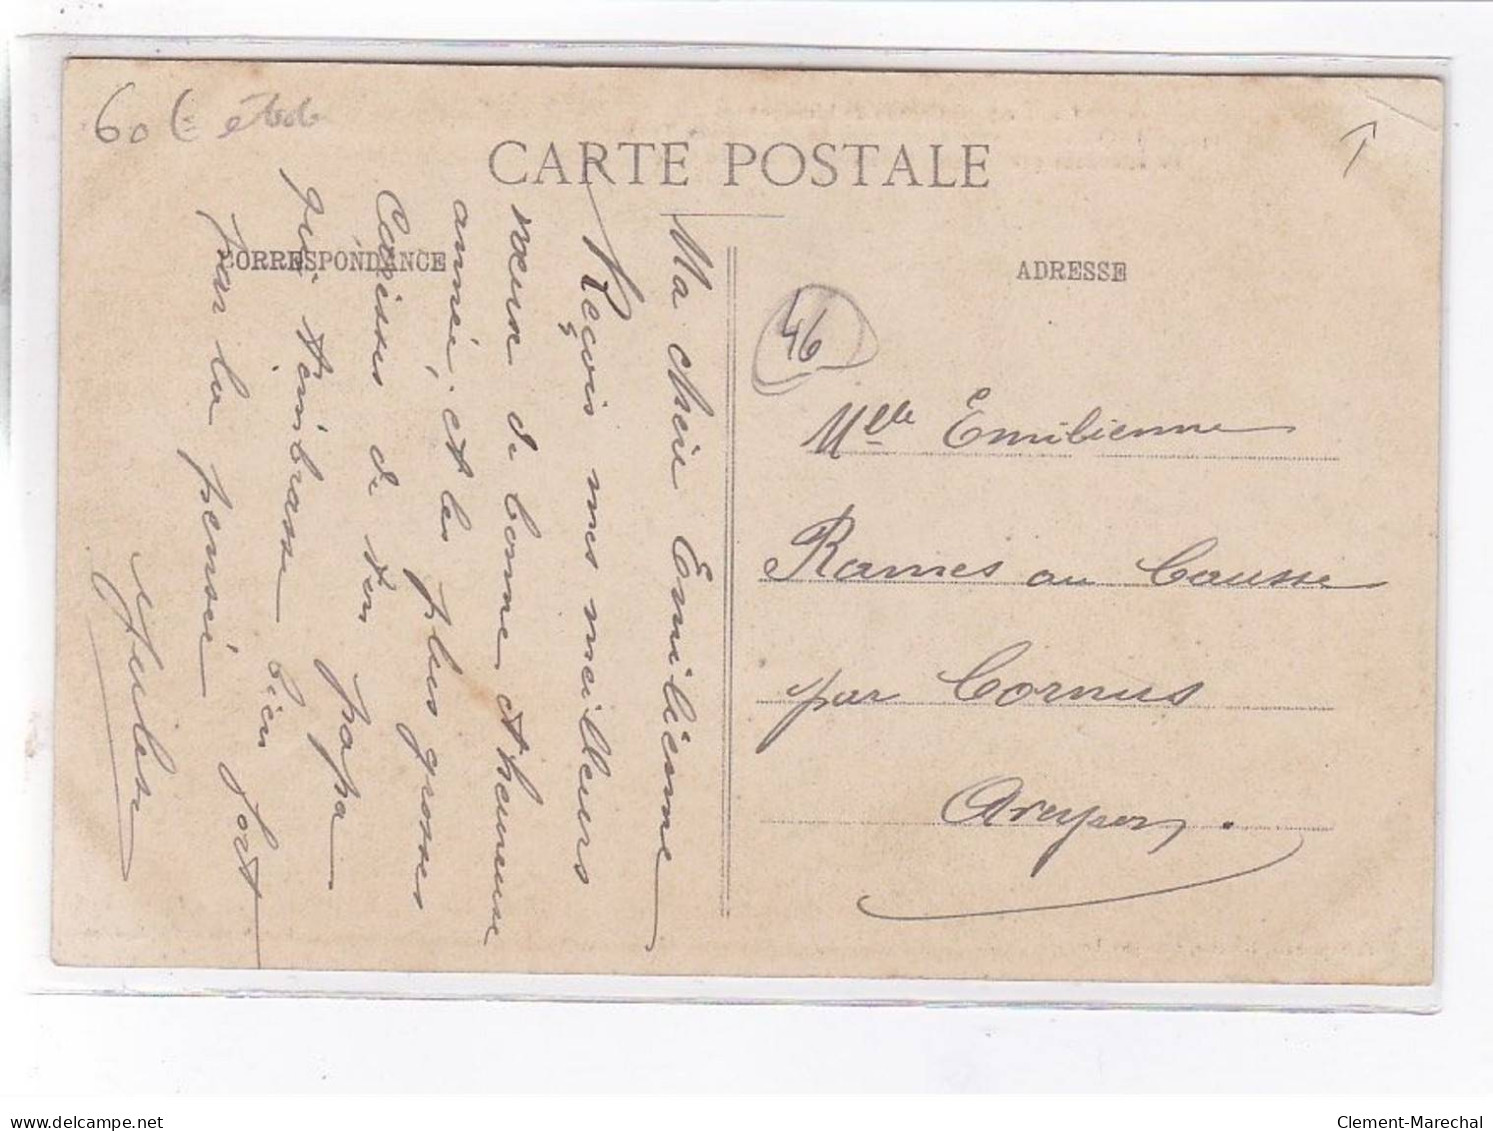 60 €
CARTE POSTALE
CORRESPONDANCE
ADRESSE
46
Ma chère Emilienne
Reçois mes meilleurs
vœux de bonne et heureuse
année, et les plus grosses
Caresses de ton papa
qui t'embrasse bien fort
par la pensée
Jules
Mlle Emilienne
Rames au Causse
par Cornus
Aveyron.
www.delcampe.net
Clement-Marechal